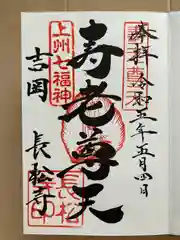 奉拝
令和五年五月四日
寿老尊天
上州七福神
吉岡
長松寺